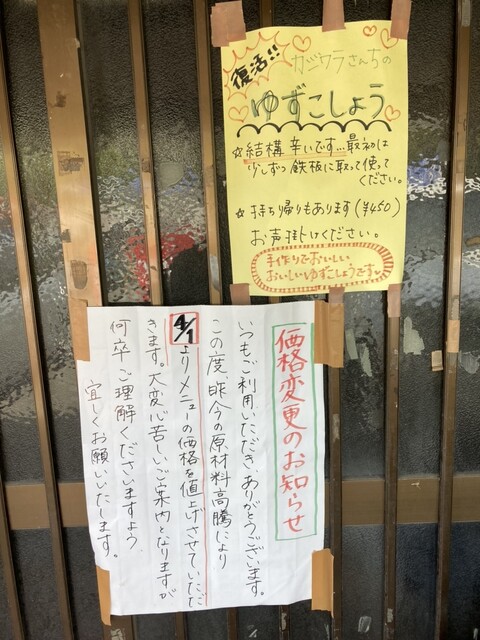 復活!!
カジワラさんちの
ゆずこしょう
☆結構辛いです…最初は
少しずつ鉄板に取って使って
ください。
☆持ち帰りもあります(¥450)
お声掛けください。
手作りでおいしい
おいしいゆずこしょうです
価格変更のお知らせ
いつもご利用いただき、ありがとうございます。
この度、昨今の原材料高騰により
4/1よりメニューの価格を値上げさせていただ
きます。大変心苦しいご案内となりますが
何卒ご理解くださいますよう
宜しくお願いいたします。